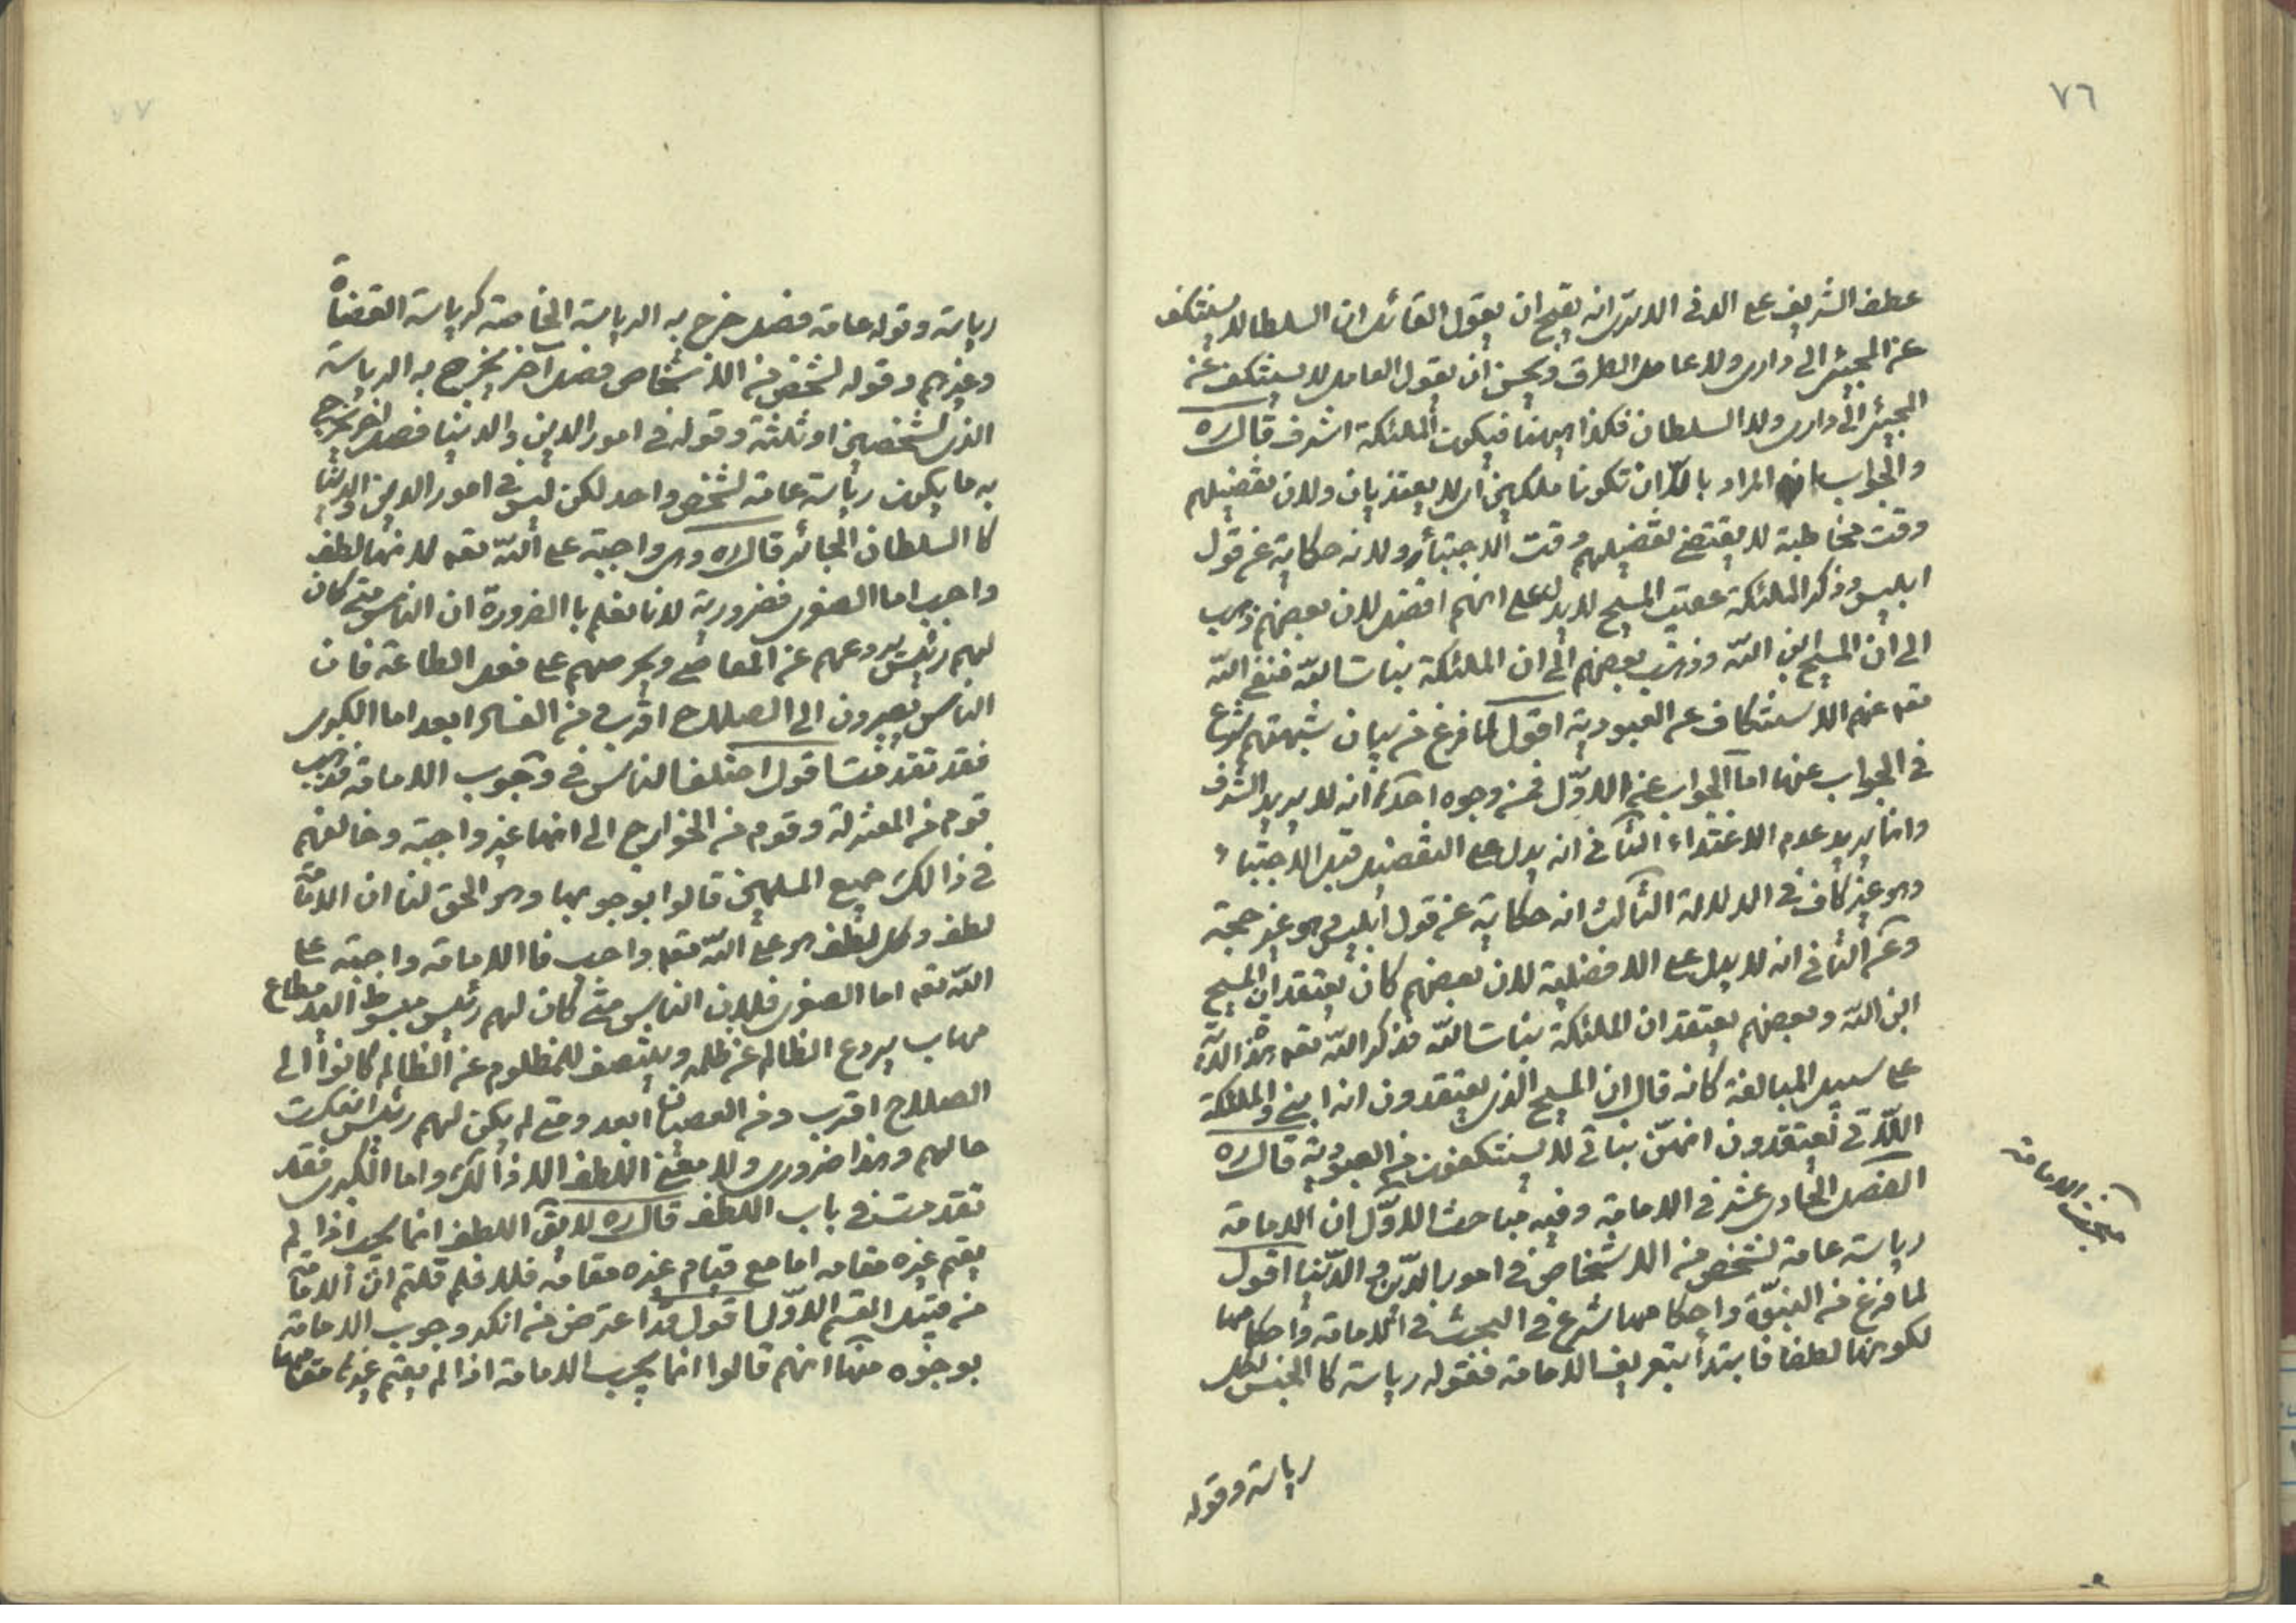 ٧٦
عطف الشريف على الادنى الا ترى انه يقبح ان يقول القائل ان السلطان لا يستنكف
عن المجيئ الى دارى ولا عامل الطرف ويحسن ان يقول العامل لا يستنكف عن
المجيئ الى دارى ولا السلطان فكذا ههنا فيكون الملئكة اشرف قال ره
والجواب ان المراد بالا ان تكونا ملكين اى لا يغتذيان ولان تفضيلهم
وقت مخاطبة لا يقتضى تفضيلهم وقت الاجتباء ولانه حكاية عن قول
ابليس وذكر الملئكة عقيب المسيح لا يدل على انهم افضل لان بعضهم ذهب
الى ان المسيح ابن الله وذهب بعضهم الى ان الملئكة بنات الله فنفى الله
تعه عنهم الاستنكاف عن العبودية اقول لما فرغ من بيان شبهتهم شرع
فى الجواب عنها اما الجواب عن الاوّل فمن وجوه احدها انه لا يريد الشرف
وانما يريد عدم الاغتذاء الثانى انه يدل على التفضيل قبل الاجتباء
وهو غير كاف فى الدلالة الثالث انه حكاية عن قول ابليس وهو غير حجة
وعن الثانى انه لا يدل على الافضلية لان بعضهم كان يعتقد ان المسيح
ابن الله وبعضهم يعتقد ان الملئكة بنات الله فذكر الله تعه هذه الاية
على سبيل المبالغة كانه قال ان المسيح الذى يعتقدون انه ابنى والملئكة
اللاتى تعتقدون انهنّ بناتى لا يستنكفون من العبودية قال ره
الفصل الحادى عشر فى الامامة وفيه مباحث الاوّل ان الامامة
رياسة عامة لشخص من الاشخاص فى امور الدّين والدّنيا اقول
لما فرغ من النبوّة واحكامها شرع فى البحث فى الامامة واحكامها
لكونها لطفا فابتدأ بتعريف الامامة فقوله رياسة كالجنس لكل
رياسة وقوله
مبحث الامامة
٧٧
رياسة وقوله عامة فصل خرج به الرياسة الخاصة كرياسة القضاة
وغيرهم وقوله لشخص من الاشخاص فصل آخر يخرج به الرياسة
الذى لشخصين او ثلثة وقوله فى امور الدين والدنيا فصل اخر يخرج
به ما يكون رياسة عامة لشخص واحد لكن ليس فى امور الدين والدنيا
كالسلطان الجائر قال ره وهى واجبة على الله تعه لانها لطف
واجب اما الصغرى فضرورية لانا نعلم باالضرورة ان الناس متى كان
لهم رئيس يردعهم عن المعاصى ويحرصهم على فعل الطاعة فان
الناس يصيرون الى الصلاح اقرب ومن الفساد ابعد اما الكبرى
فقد تقدمت اقول اختلف الناس فى وجوب الامامة فذهب
قوم من المعتزلة وقوم من الخوارج الى انها غير واجبة وخالفهم
فى ذالك جميع المسلمين قالوا بوجوبها وهو الحق لنا ان الامامة
لطف وكل لطف هو على الله تعه واجب فاالامامة واجبة على
الله تعه اما الصغرى فلان الناس متى كان لهم رئيس مبسوط اليد مطاع
مهاب يردع الظالم عن ظلمه وينتصف للمظلوم عن الظالم كانوا الى
الصلاح اقرب ومن العصيان ابعد ومتى لم يكن لهم رئيس انعكست
حالهم وهذا ضرورى ولا معنى اللطف الا ذالك واما الكبرى فقد
تقدمت فى باب اللطف قال ره لا يق اللطف انما يجب اذا لم
يقم غيره مقامه اما مع قيام غيره مقامه فلا فلم قلتم ان الامامة
من قبيل القسم الاوّل اقول هذا اعتراض من انكر وجوب الامامة
بوجوه منها انهم قالوا انما يجب الامامة اذا لم يقم غيرها مقامها